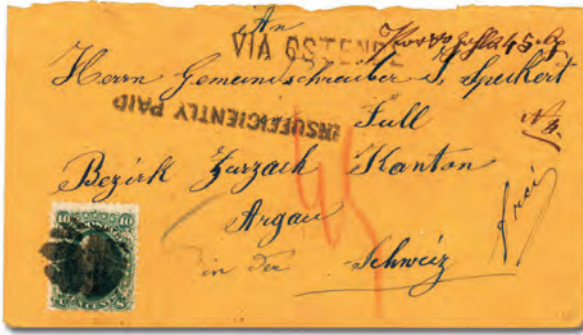 An
VIA OSTENDE
45
Herrn Gemeindschreiber S. Speikert
INSUFFICIENTLY PAID
Full
Bezirk Zurzach Kanton
Argau
frei
in der Schweiz
45
10 10